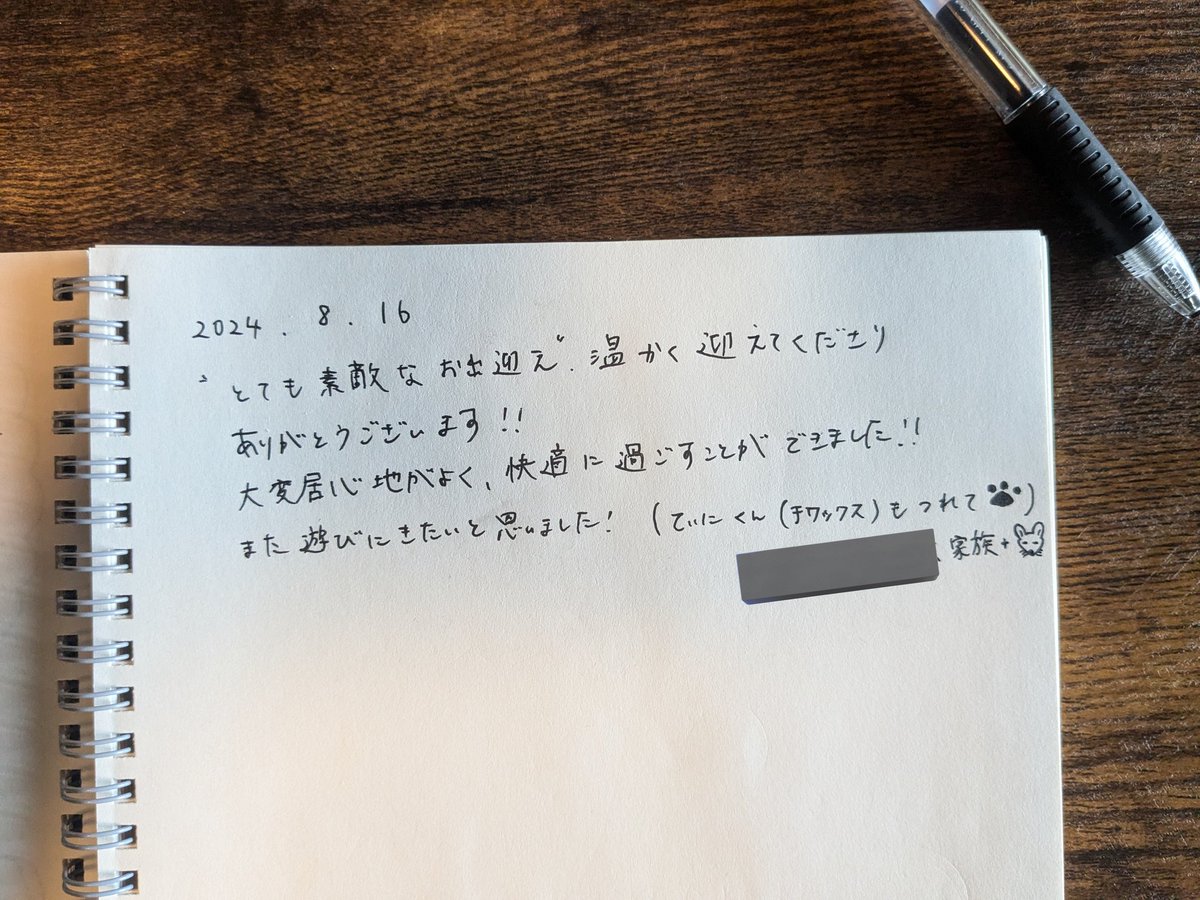 2024. 8. 16
"とても素敵なお出迎え"、温かく迎えてくださり
ありがとうございます!!
大変居心地がよく、快適に過ごすことができました!!
また遊びにきたいと思いました! (てぃにくん(チワックス)もつれて)
家族+